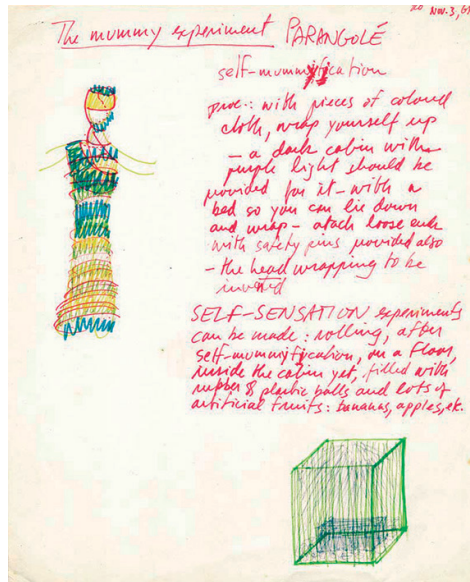 NOV. 3, 6
The mummy experiment PARANGOLÉ
self-mummification
proc.: with pieces of colored
cloth, wrap yourself up
– a dark cabin with
purple light should be
provided for it – with a
bed so you can lie down
and wrap – atach loose ends
with safety pins provided also
– the head wrapping to be
invented
SELF-SENSATION experiments
can be made: rolling, after
self-mummification, on a floor,
inside the cabin yet, filled with
rubber & plastic balls and lots of
artificial fruits: bananas, apples, etc.